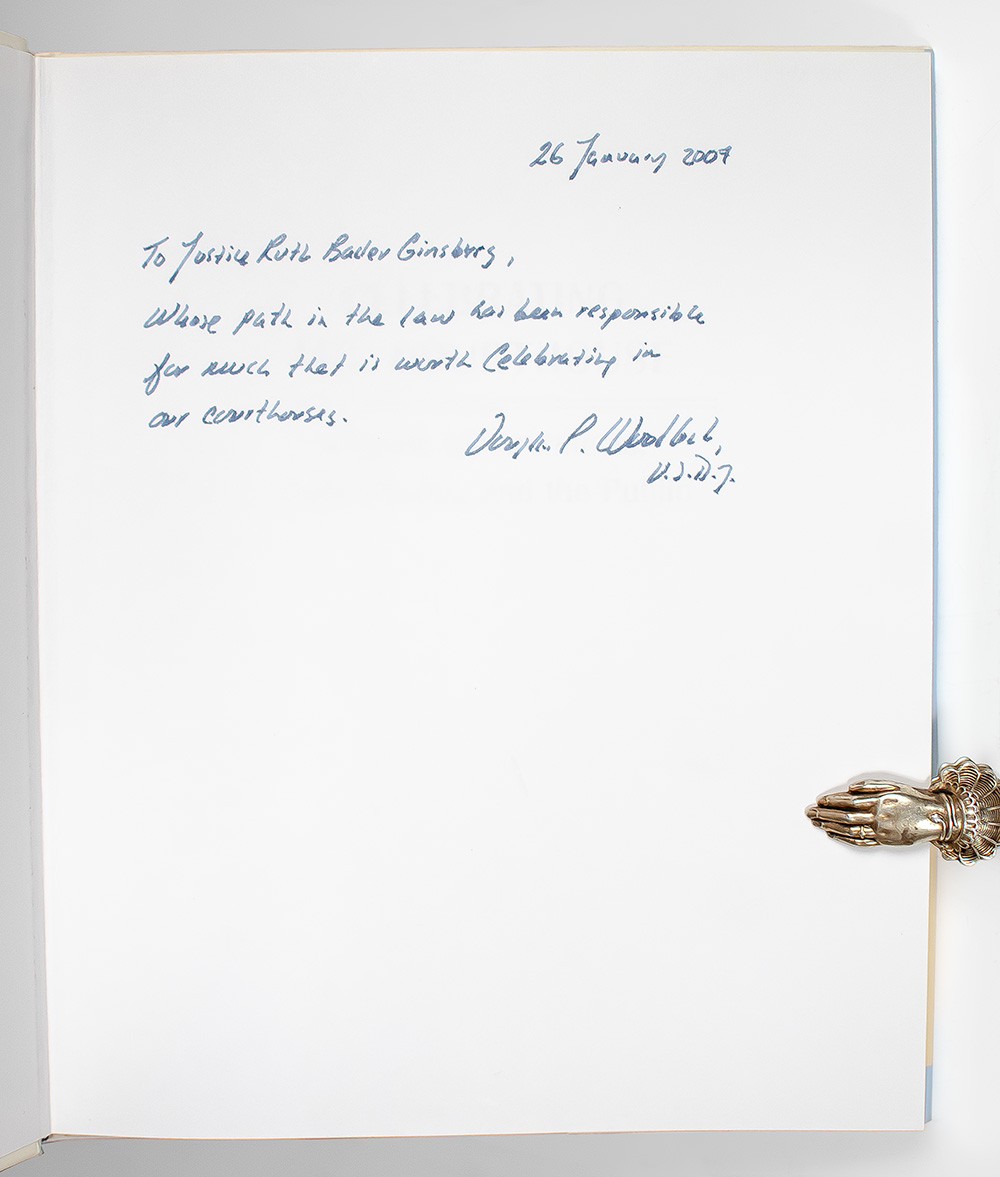 26 January 2007
To Justice Ruth Bader Ginsburg,
Whose path in the law has been responsible
for much that is worth Celebrating in
our courthouses.
Douglas P. Woodlock,
U.S.D.J.